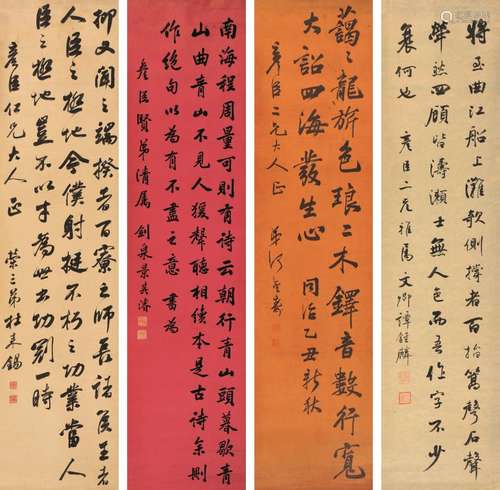 將至曲江船上灘欹側撐者百指篙聲石聲
犖然四顧皆濤瀨士無人色而吾作字不少
衰何也 彥臣二兄雅屬 文卿譚鍾麟
藹二龍旂色琅二木鐸音數行寬
大詔四海發生心 同治乙丑新秋
彥臣二兄大人正 弟
南海程周量可則有詩云朝行青山頭暮歇青
山曲青山不見人猿聲聽相續本是古詩余則
作絕句以為有不盡之意 書為
彥臣賢弟清屬 劍泉景其濬
抑又聞之端揆者百寮之師長諸侯王者
人臣之極地今僕射挺不朽之功業當人
臣之極地豈不以才為世出功冠一時
彥臣仁兄大人正 榮三弟杜來錫